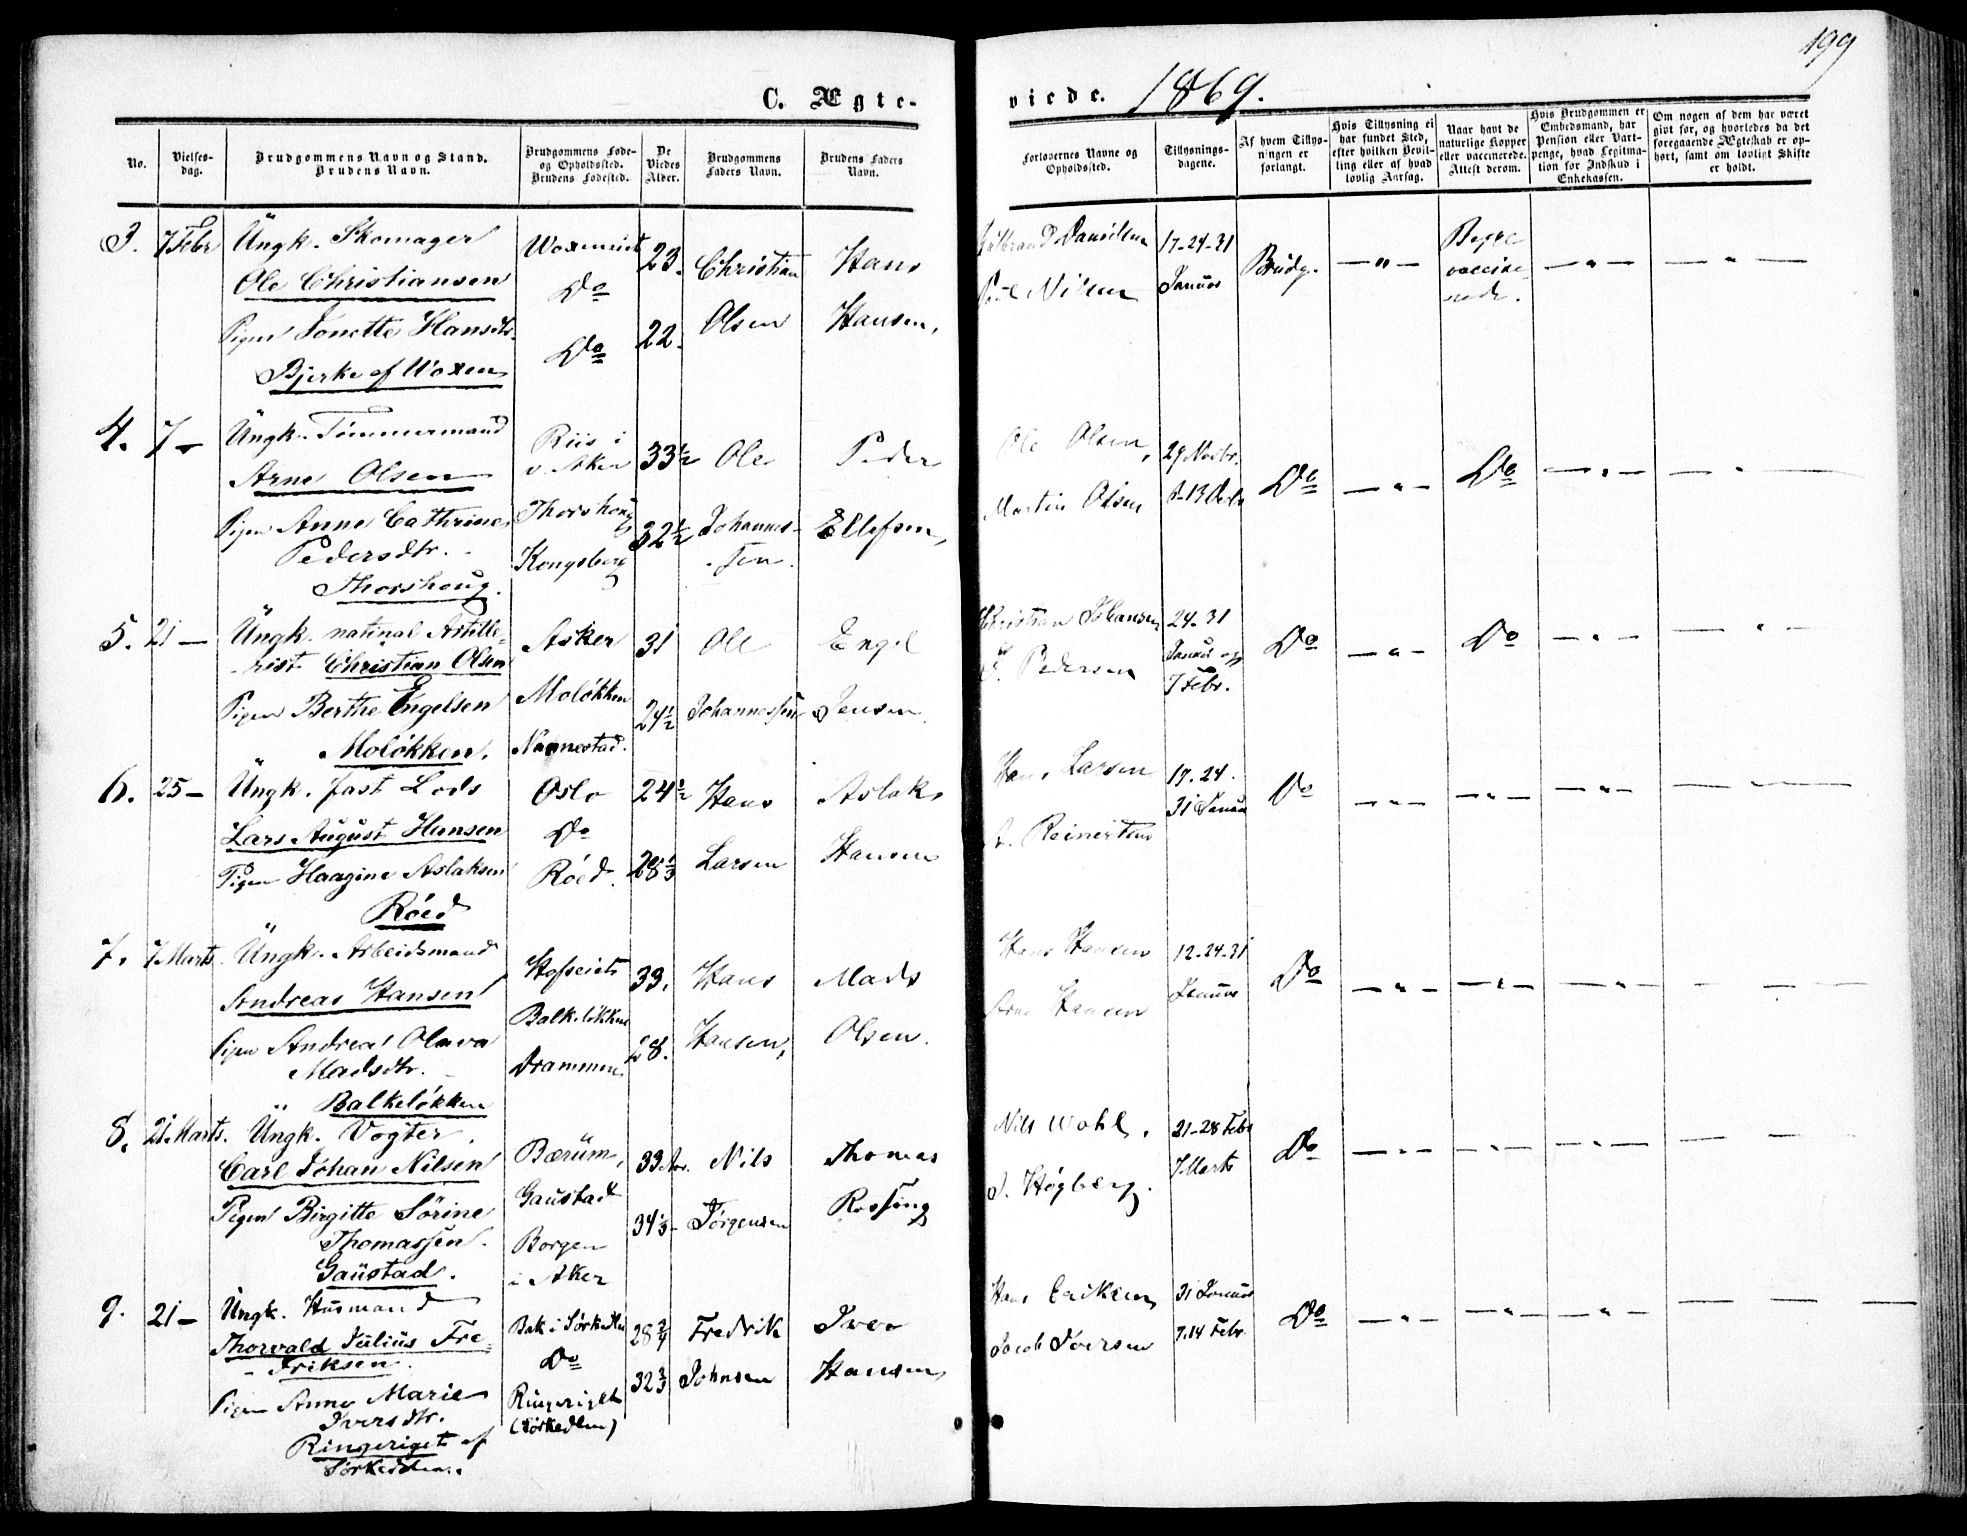 199
C. Ægte-
viede. 1869.
No.
Vielses-
dag.
Brudgommens Navn og Stand.
Brudens Navn.
Brudgommens Føde-
og Opholdssted.
Brudens Fødested.
De
Viedes
Alder.
Brudgommens
Faders Navn.
Brudens Faders
Navn.
Forlovernes Navne og
Opholdssted.
Tillysnings-
dagene.
Af hvem Tillys-
ningen er
forlangt.
Hvis Tillysning ei
har fundet Sted,
efter hvilken Bevil-
ling eller af hvad
lovlig Aarsag.
Naar havt de
naturlige Kopper
eller vaccinerede.
Attest derom.
Hvis Brudgommen er
Embedsmand, har
Pension eller Vart-
penge, hvad Legitma-
tion for Indskud i
Enkekassen.
Om nogen af dem har været
givt før, og hvorledes da det
foregaaende Ægteskab er op-
hørt, samt om lovligt Skifte
er holdt.
3. 7 Febr Ungk. Skomager
Ole Christiansen
Pigen Jonette Hansdtr.
Bjerke af Woxen
Do
Do
23.
22.
Christian
Olsen
Hans
Hansen,
Danielsen
Nilsen
17-24-31
Januar
Brudg.
— " —
Begge
vaccine-
rede.
— " —
— " —
4. 7 — Ungk. Tømmermand
Arne Olsen
Pigen Anne Cathrine
Pedersdtr.
Thorshoug.
Riis i
v. Aker
Thorshoug
Kongsberg
33½
32½
Ole
Johannes-
sen.
Peder
Ellefsen,
Ole Olsen,
Martin Olsen
29 Novbr.
Do
— " —
Do
— " —
— " —
5. 21 — Ungk. natinal Artille-
rist Christian Olsen
Pigen Berthe Engelsen
" Moløkken.
Asker
Moløkken
Nannestad.
31
24½
Ole
Johannessen
Engel
Jensen
Christian Johansen
Pedersen
24-31
Januar og
7 Febr.
Do
— " —
Do
— " —
— " —
6. 25 — Ungk. fast Lods
Lars August Hansen
Pigen Haagine Aslaksen
Røed
Oslo
Do
Røed.
24½
28⅓
Hans
Larsen
Aslak
Hansen
Hans Larsen
A. Reinertsen
17-24.
31 Januar
Do
— " —
— " —
— " —
7. 7 Marts. Ungk. Arbeidsmand
Andreas Hansen
Pigen Andrea Olava
Madsdtr.
" Balkeløkken
Balkeløkken
Drammen
33.
28.
Hans
Hansen,
Mads
Olsen.
Hans Hansen
Arne Hansen
12-24-31
Januar
Do
— " —
— " —
— " —
8. 21 Marts. Ungk. Vogter.
Carl Johan Nilsen
Pigen Birgitte Sørine
Thomassen.
Gaustad.
Bærum,
Gaustad
Borgen
i Aker
33
34⅓
Nils
Jørgensen
Thomas
Rossing
Nils Wahl.
Høgberg.
21-28 Febr
7 Marts
Do
— " —
— " —
— " —
9. 21 — Ungk. Husmand
Thorvald Julius Fre-
driksen.
Pigen Anne Marie
Iversdtr.
Ringeriget af
Sørkedalen.
Bak i
Do
Ringeriget
28¾
32⅔
Fredrik
Johnsen
Iver
Hansen
Hans Eriksen
Jacob Iversen
31 Januar
7.14 Febr.
Do
— " —
— " —
— " —